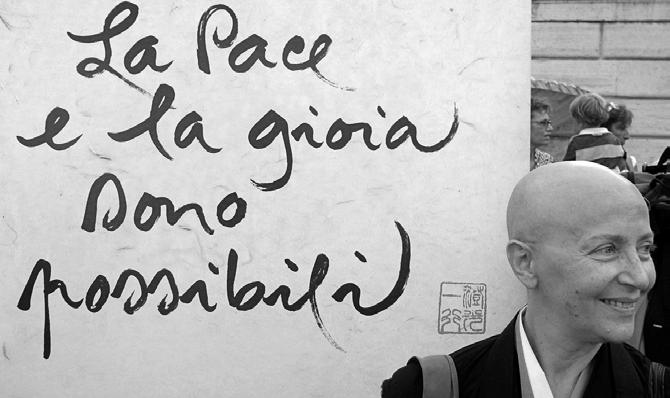 La Pace
e la gioia
sono
possibili